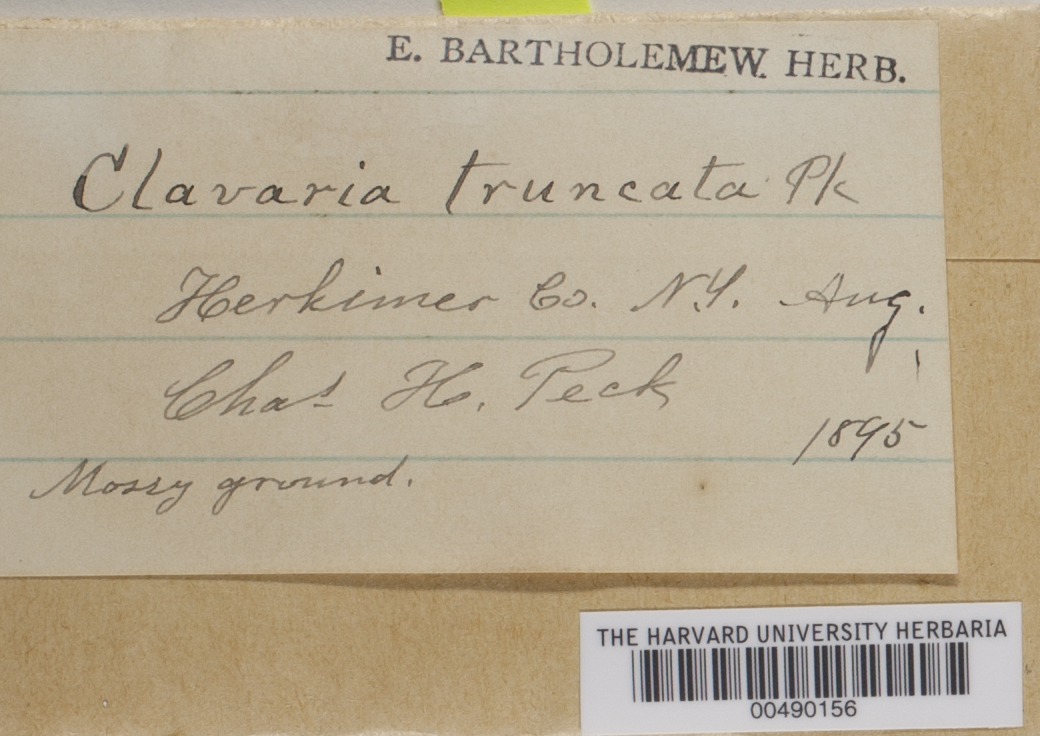 E. BARTHOLEMEW. HERB.
Clavaria truncata Pk
Herkimer Co. N.Y. Aug.
Chas H. Peck
1895
Mossy ground.
THE HARVARD UNIVERSITY HERBARIA
00490156